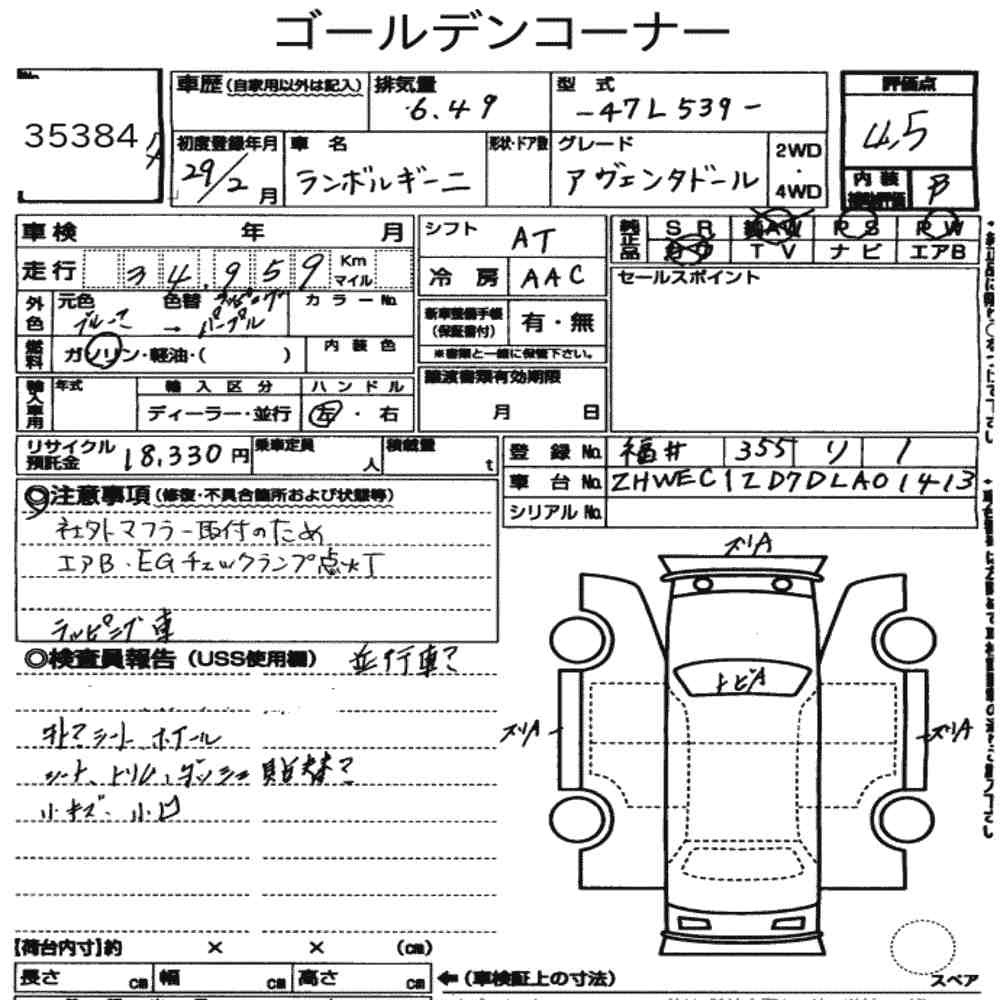 ゴールデンコーナー
No.
35384
車歴 (自家用以外は記入)
排気量
6.49
型式
-47L539-
評価点
4.5
初度登録年月
29/2月
車名
ランボルギーニ
形状・ドア数
グレード
アヴェンタドール
2WD
・
4WD
内装
B
車検 年 月
走行 34,959 Km マイル
外色
元色
色替
ラッピング
カラーNo.
→ パープル
燃料
ガソリン・軽油・( )
内装色
輸入車用
年式
輸入区分
ハンドル
ディーラー・並行
左・右
シフト
AT
冷房
AAC
新車整備手帳
(保証書付)
有・無
※書類と一緒に保管下さい。
譲渡書類有効期限
月 日
純正品
SR AW PS PW
TV ナビ エアB
セールスポイント
リサイクル預託金
18,330円
乗車定員
人
積載量
t
登録No.
福井 355 り 1
車台No.
ZHWEC1ZD7DLA01413
シリアルNo.
◎注意事項 (修復・不具合箇所および状態等)
社外マフラー取付のため
エアB・EGチェックランプ点灯
ラッピング車
◎検査員報告 (USS使用欄)
並行車
シート ホイール
シート、トリム、ダッシュ 貼替
小キズ・小凹
ズリA
トビA
ズリA
ズリA
【荷台内寸】約 × × (cm)
長さ cm 幅 cm 高さ cm
← (車検証上の寸法)
スペア